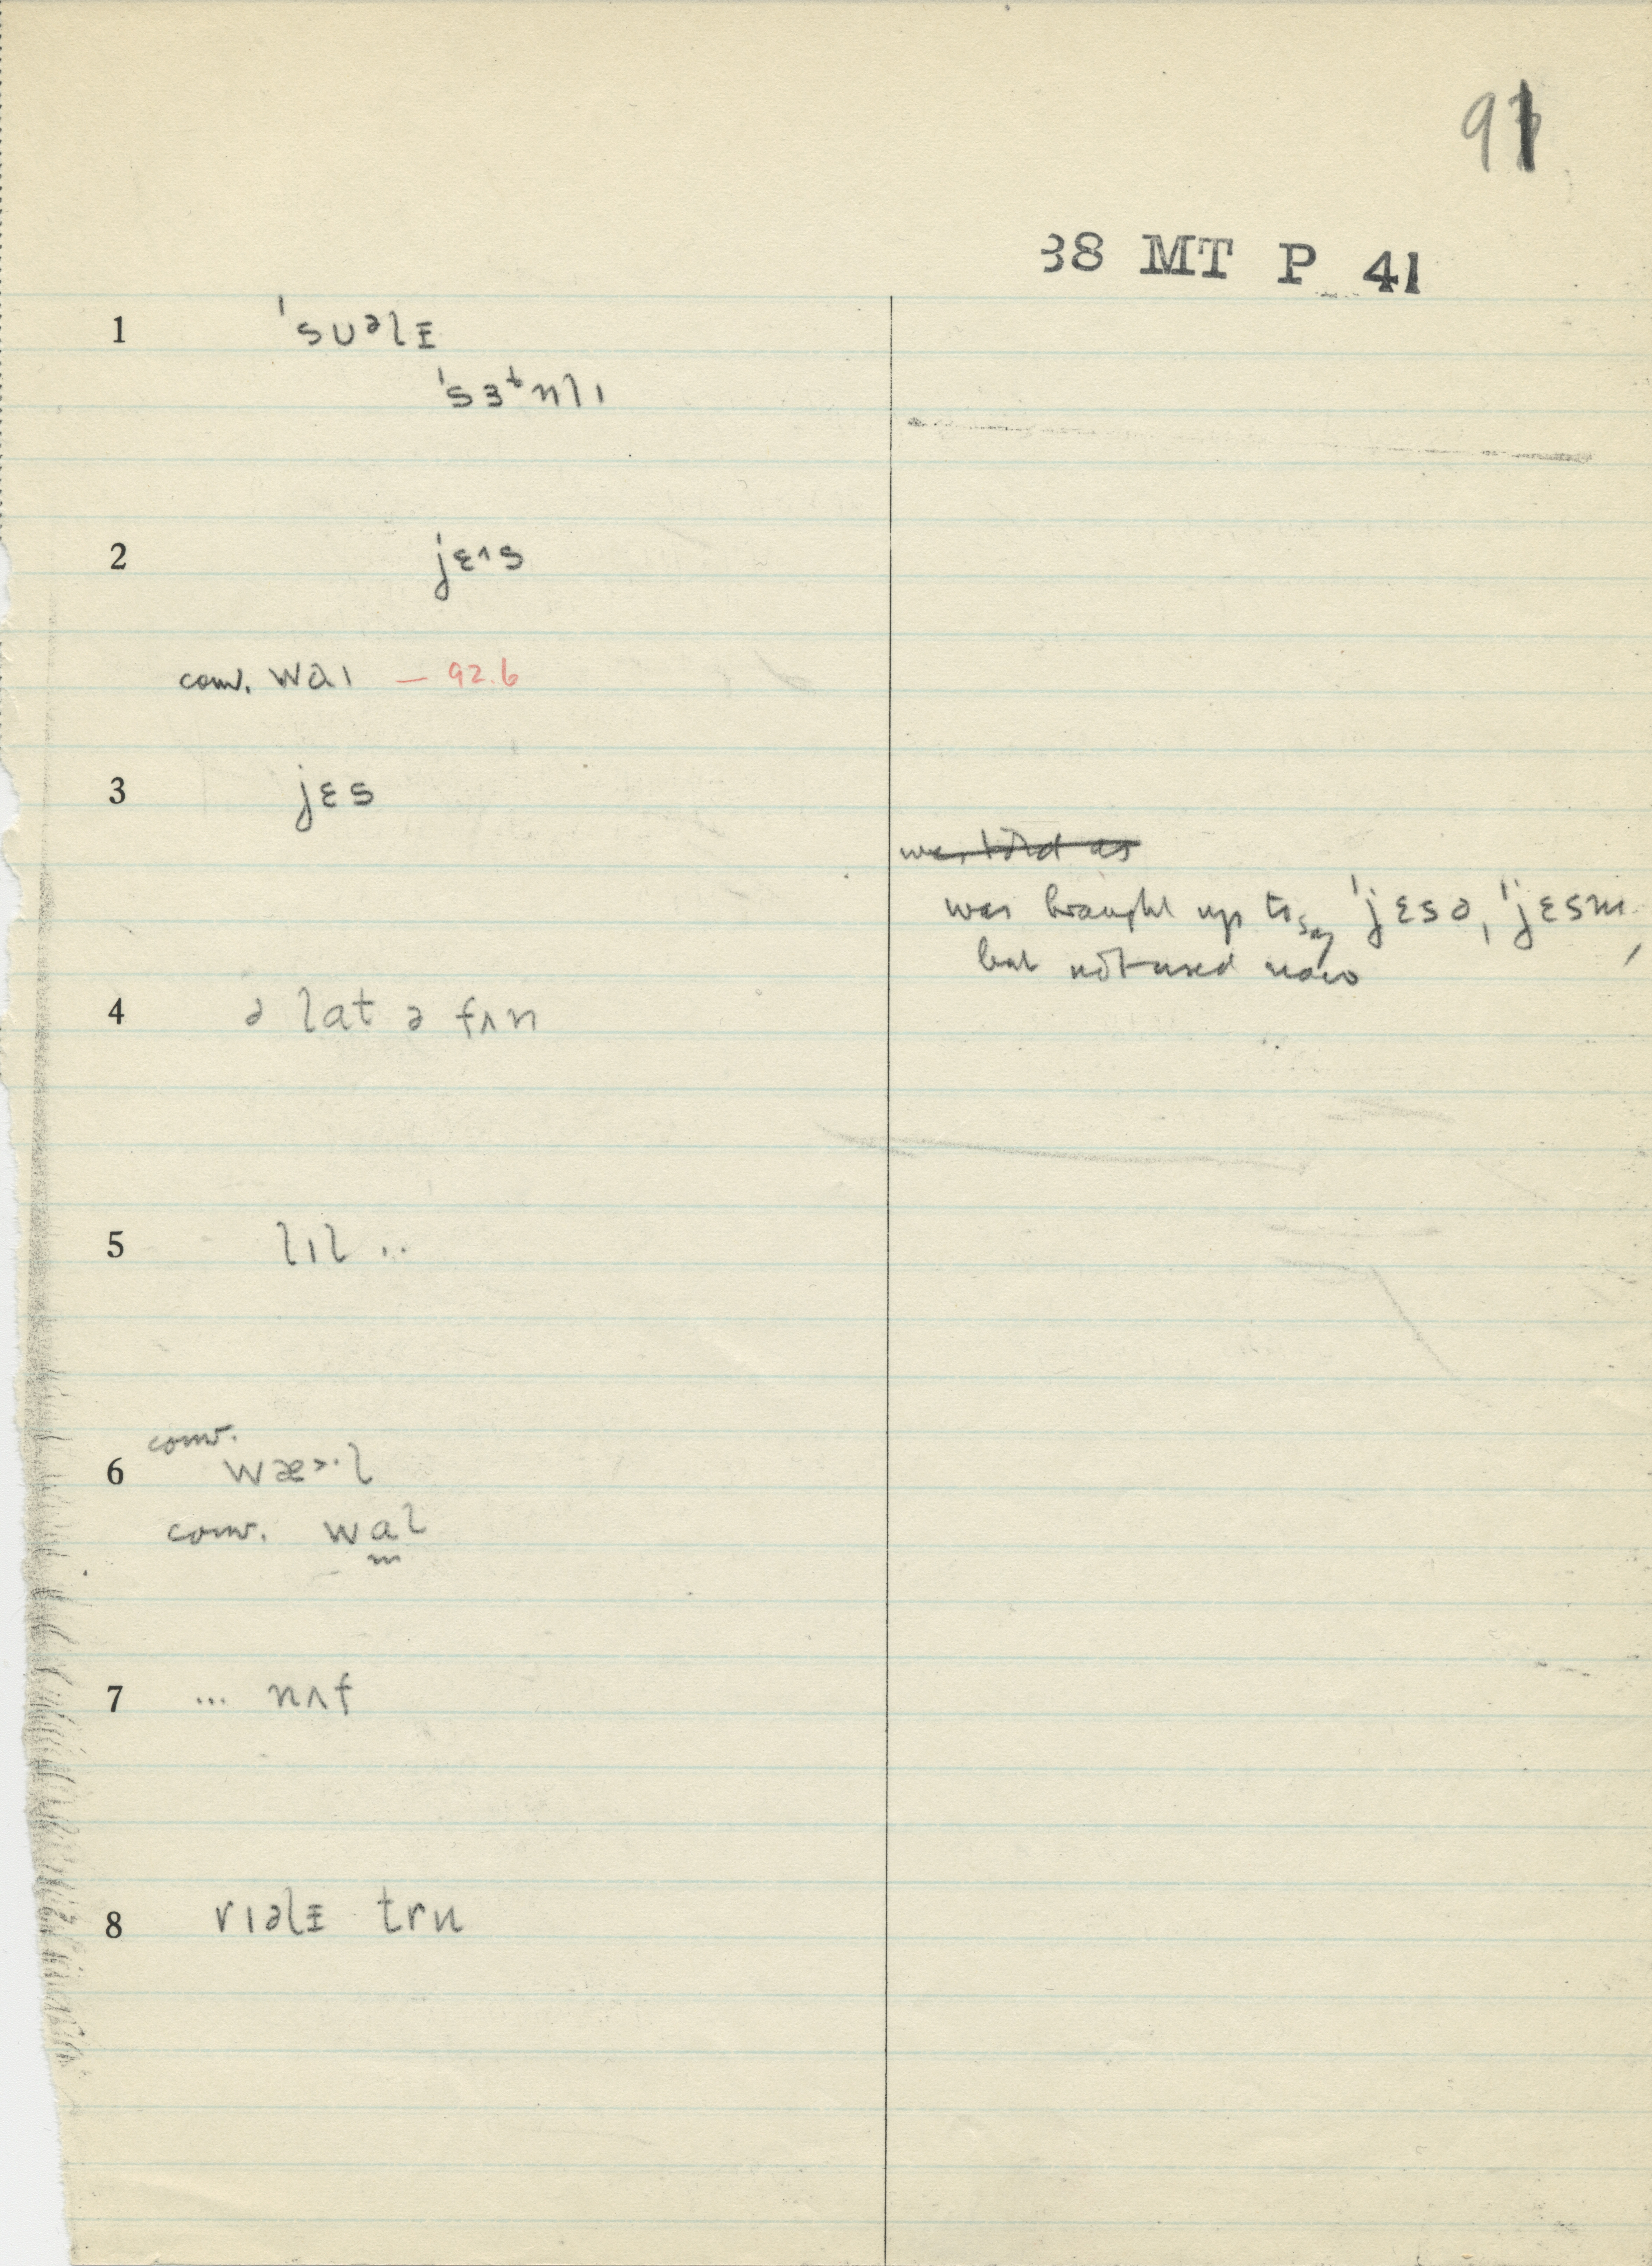 91
38 MT P 41
1 ˈsuᵊlɪ
ˈsɜᵗnlɪ
2 jɛɪˆs
conv. waɪ — 92.6
3 jɛs
was brought up to say ˈjɛsə, ˈjɛsm,
but not used now
4 ə lat ə fʌn
5 lɪl ..
6 conv. wæ>·l
conv. wal
7 ... nʌf
8 rɪəlɪ tru